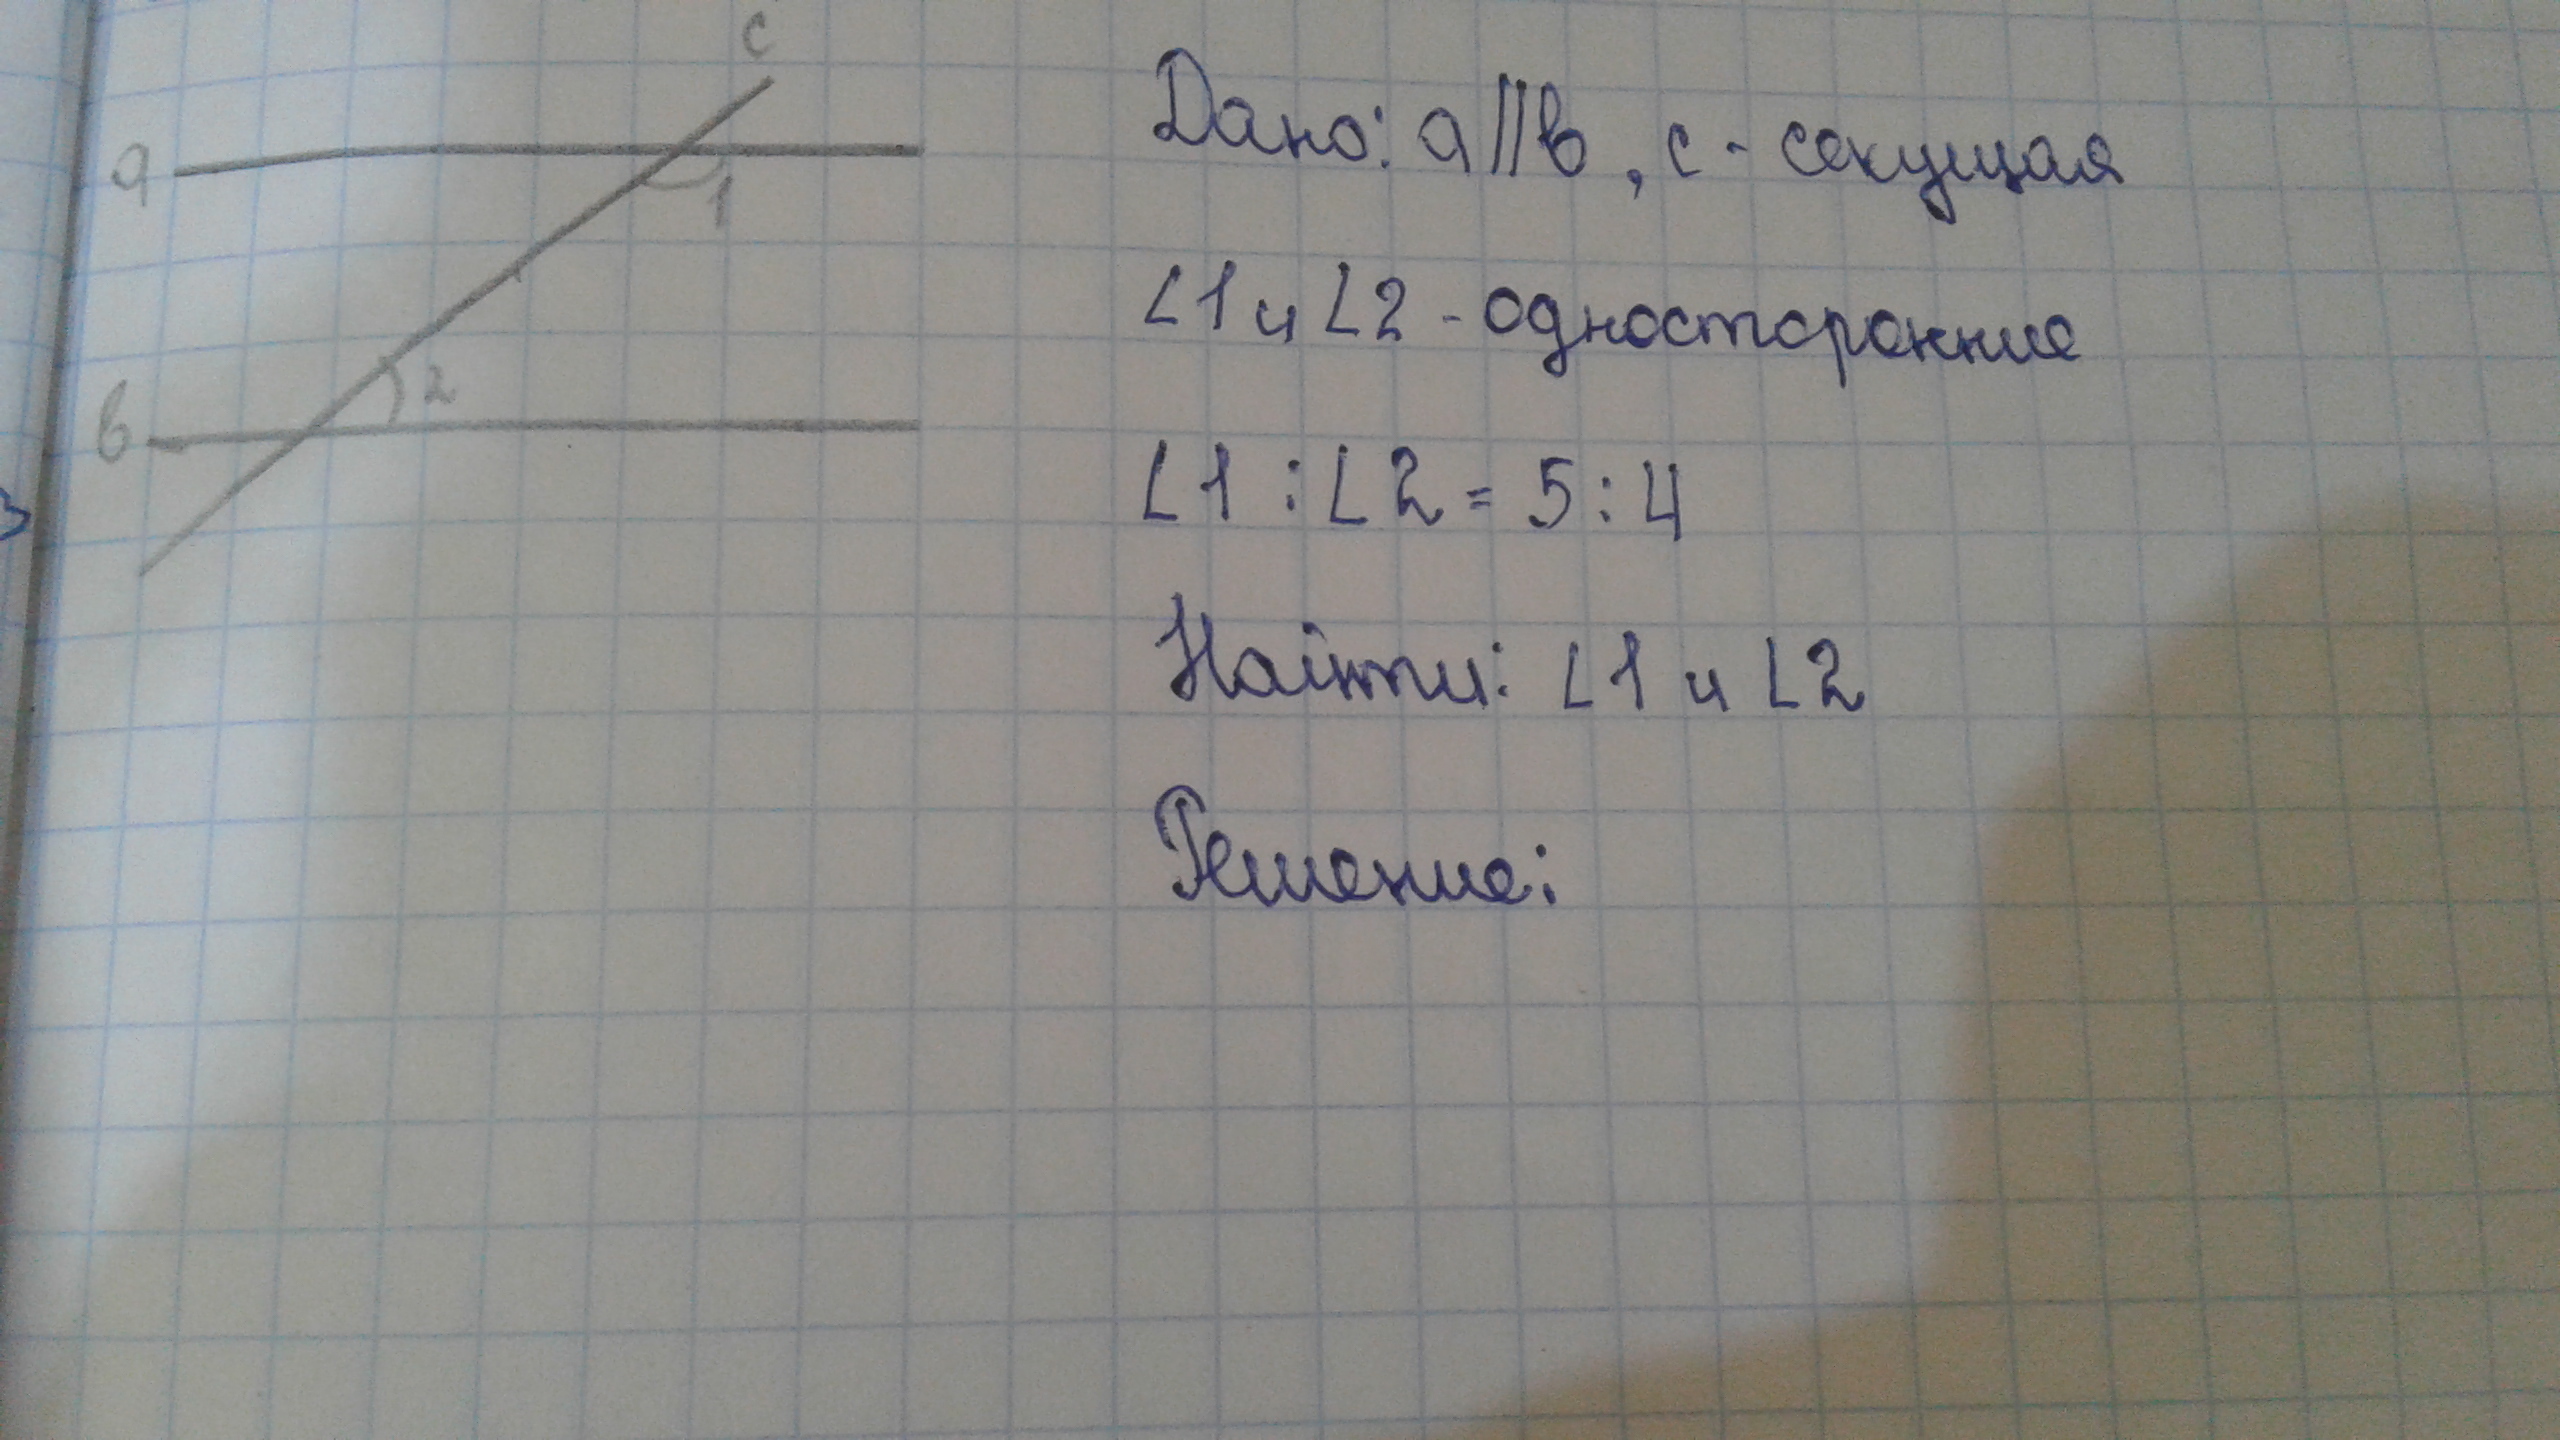 c
a
1
2
в
Дано: a||в, c - секущая
∠1 и ∠2 - односторонние
∠1 : ∠2 = 5 : 4
Найти: ∠1 и ∠2
Решение: